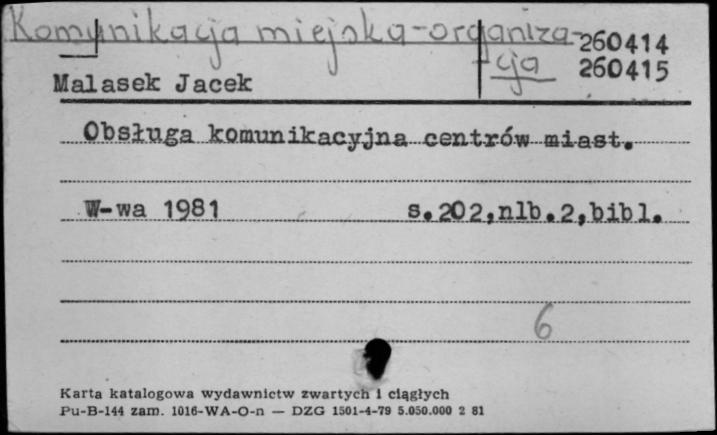 Komunikacja miejska-organiza-
cja
260414
260415
Malasek Jacek
Obsługa komunikacyjna centrów miast.
W-wa 1981 s.202,nlb.2,bibl.
6
Karta katalogowa wydawnictw zwartych i ciągłych
Pu-B-144 zam. 1016-WA-O-n — DZG 1501-4-79 5.050.000 2 81